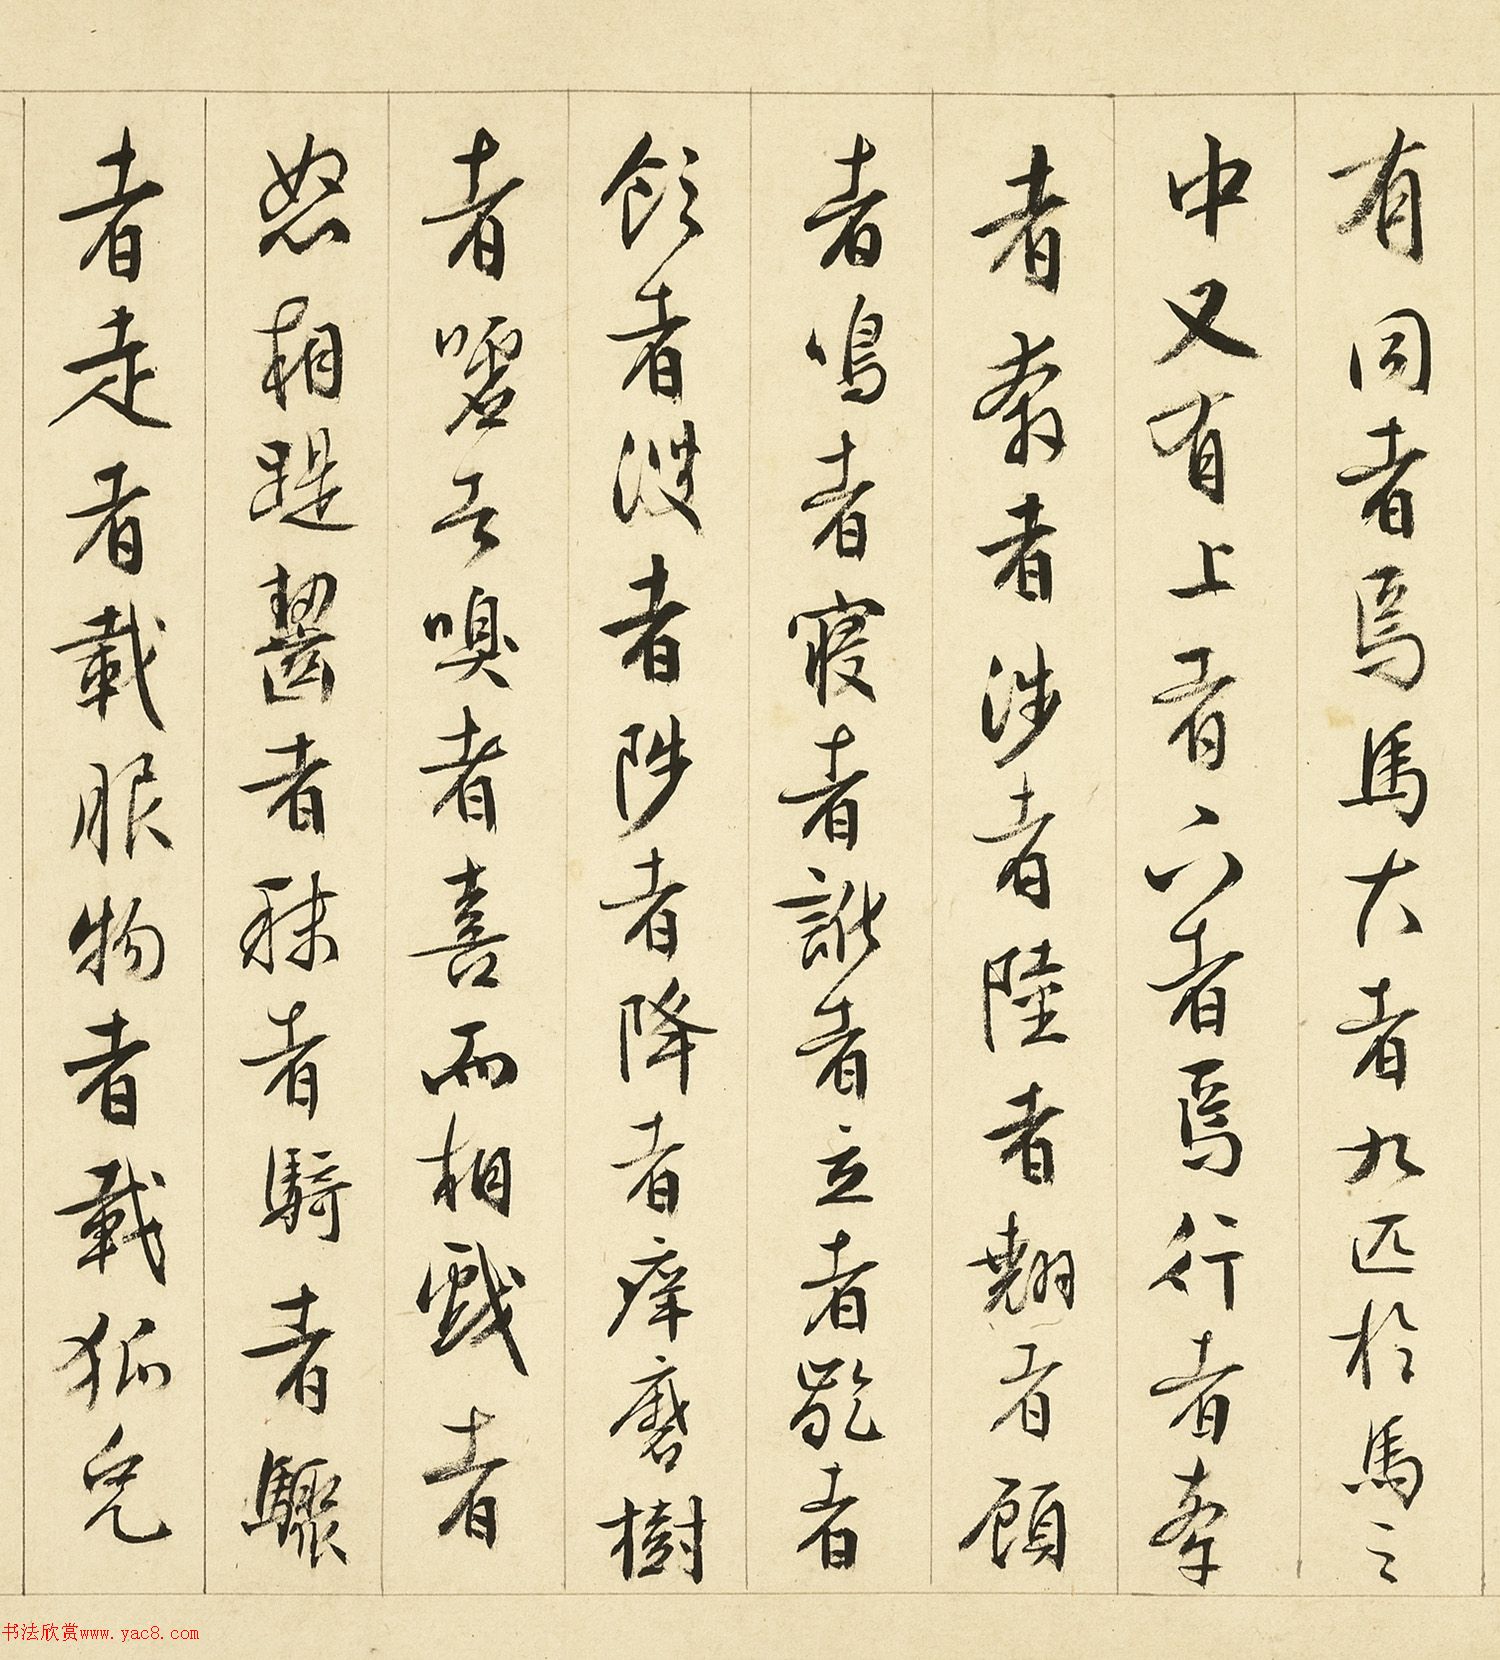 有同者焉馬大者九匹於馬之
中又有上者下者焉行者牽
者奔者涉者陸者翹者顧
者鳴者寢者訛者立者齕者
飲者溲者陟者降者痒磨樹
者噓者嗅者喜而相戲者
怒相踶齧者秣者騎者驟
者走者載服物者載狐兔
书法欣赏www.yac8.com